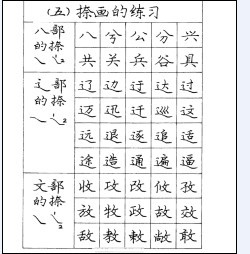 (五)捺画的练习
八部的捺
八 兮 公 分 兴
共 关 兵 谷 具
辶部的捺
辽 边 迂 达 过
迈 迅 迁 巡 这
远 退 逐 追 适
途 造 通 遍 逼
文部的捺
收 攻 改 攸 孜
放 牧 政 故 效
敌 教 敕 敞 敢